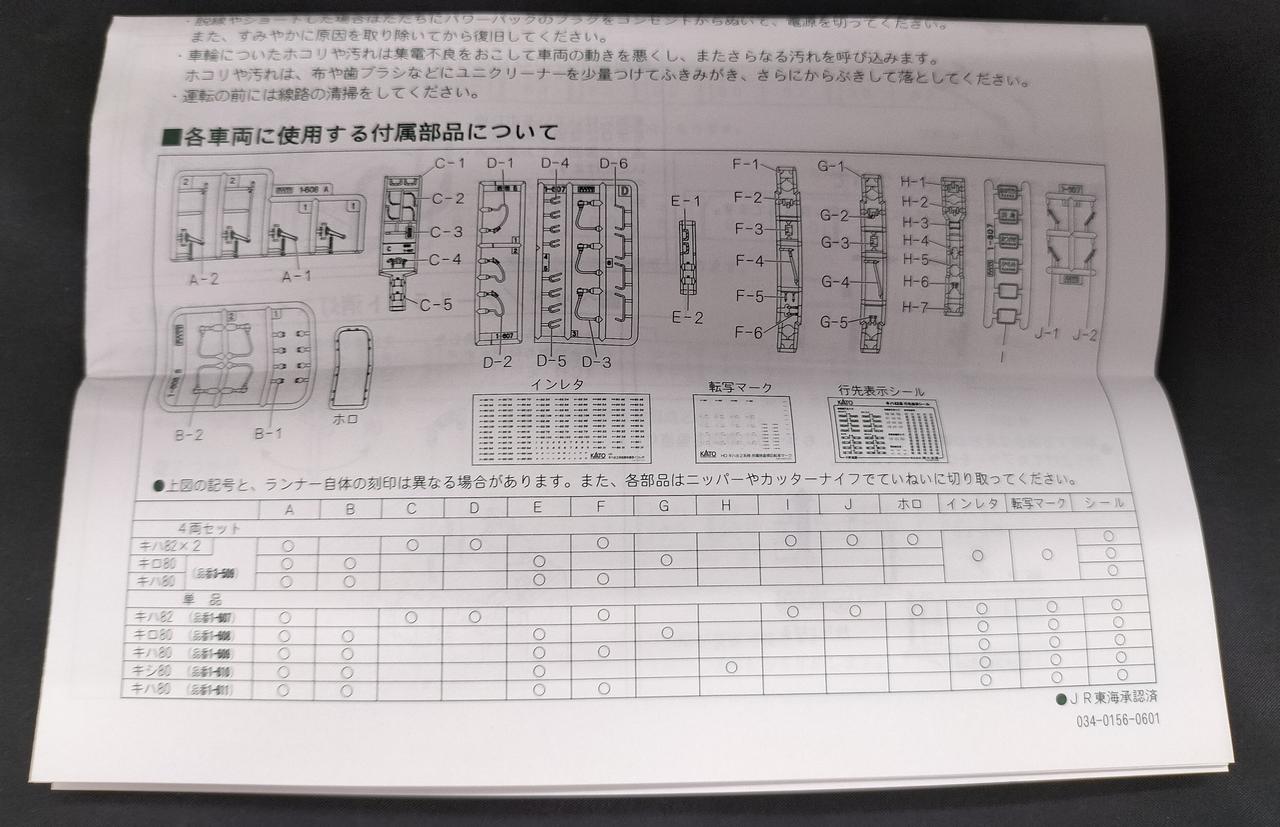 ・脱線やショートした場合はただちにパワーパックのプラグをコンセントからぬいて、電源を切ってください。
また、すみやかに原因を取り除いてから復旧してください。
・車輪についたホコリや汚れは集電不良をおこして車両の動きを悪くし、またさらなる汚れを呼び込みます。
ホコリや汚れは、布や歯ブラシなどにユニクリーナーを少量つけてふきみがき、さらにからぶきして落としてください。
・運転の前には線路の清掃をしてください。
■各車両に使用する付属部品について
2 2 1-608 A 1 1
A-2 A-1
C-1
C-2
C-3
C-4
C-5
D-1 D-4 D-6
1-607 D
1-607
D-2 D-5 D-3
E-1
E-2
F-1
F-2
F-3
F-4
F-5
F-6
G-1
G-2
G-3
G-4
G-5
H-1
H-2
H-3
H-4
H-5
H-6
H-7
1-607
I
1-607
J-1 J-2
2 1
B-2 B-1
ホロ
インレタ
KATO
転写マーク
KATO
行先表示シール
KATO
●上図の記号と、ランナー自体の刻印は異なる場合があります。また、各部品はニッパーやカッターナイフでていねいに切り取ってください。
A B C D E F G H I J ホロ インレタ 転写マーク シール
4両セット
キハ82×2 ○ ○ ○ ○ ○ ○ ○ ○ ○ ○
キロ80 ○ ○ ○ ○ ○
キハ80 ○ ○ ○ ○ ○
単 品
キハ82 (品番1-607) ○ ○ ○ ○ ○ ○ ○ ○ ○ ○
キロ80 (品番1-608) ○ ○ ○ ○ ○ ○ ○
キハ80 (品番1-609) ○ ○ ○ ○ ○ ○ ○
キシ80 (品番1-610) ○ ○ ○ ○ ○ ○ ○
キハ80 (品番1-611) ○ ○ ○ ○ ○ ○ ○
●JR東海承認済
034-0156-0601